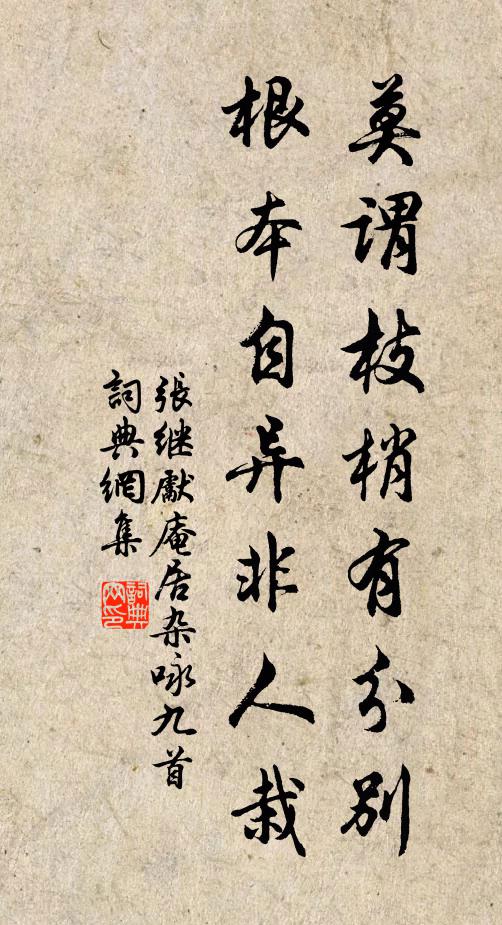 莫谓枝梢有分别
根本自异非人栽
張继獻庵居杂咏九首
詞典網集
詞典
网印